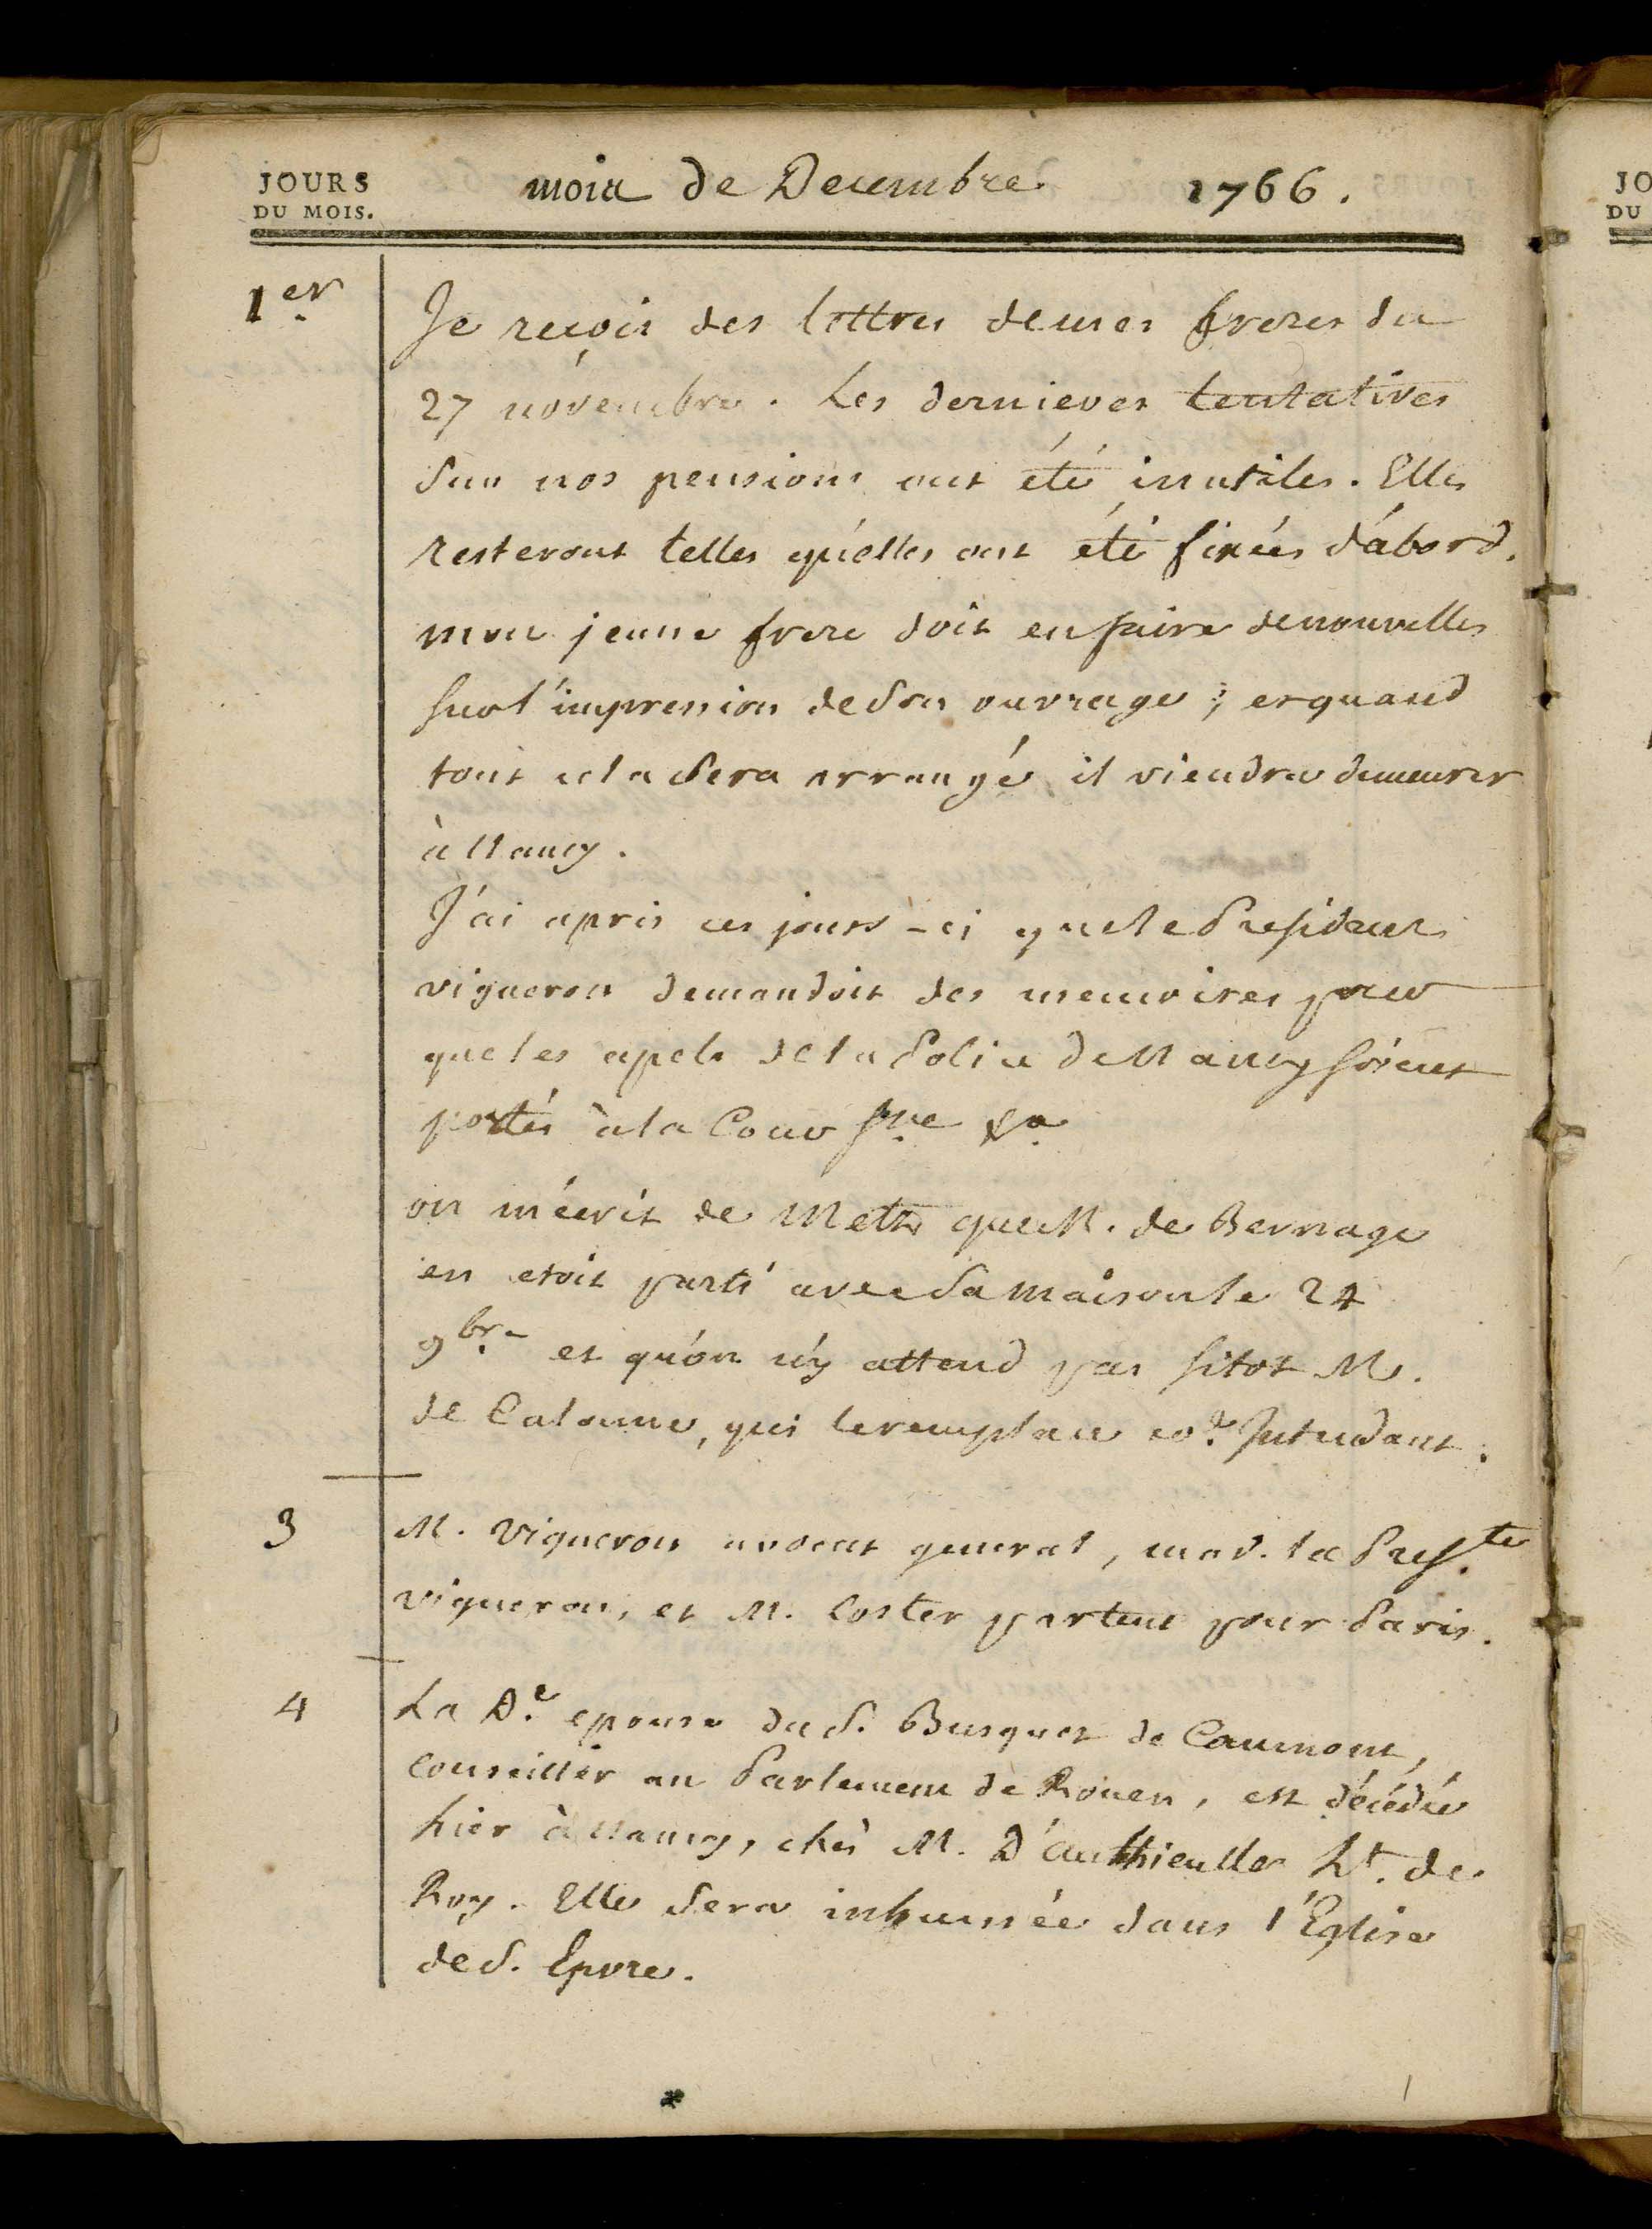 JOURS
DU MOIS.
mois de Decembre 1766.
1er. Je reçois des lettres de mes freres du
27 novembre. Les dernieres tentatives
sur nos pensions ont été inutiles. Elles
resteront telles qu'elles ont été fixées d'abord.
mon jeune frere doit en faire de nouvelles
sur l'impression de son ouvrage ; et quand
tout cela sera arrangé il viendra demeurer
à Nancy.
J'ai apris ces jours-ci que le President
vigneron demandoit des memoires pour
que les apels de la Police de Nancy soient
portés à la Cour sve &a
on m'écrit de Metz que M. de Bernage
en etoit parti avec sa maison le 24
9br.e et qu'on n'y attend pas sitot M.
de Calonne, qui le remplace coe. Intendant.
3 M. Vigneron avocat general, mad. la Pres.te
vigneron, et M. Coster partent pour Paris.
4 La De. epouse du S. Busquet de Caumont,
conseiller au Parlement de Rouen, est décédée
hier à Nancy, chès M. D'authieulle Lt. de
Roy. Elle sera inhumée dans l'Eglise
de S. Epvre.
JO
DU